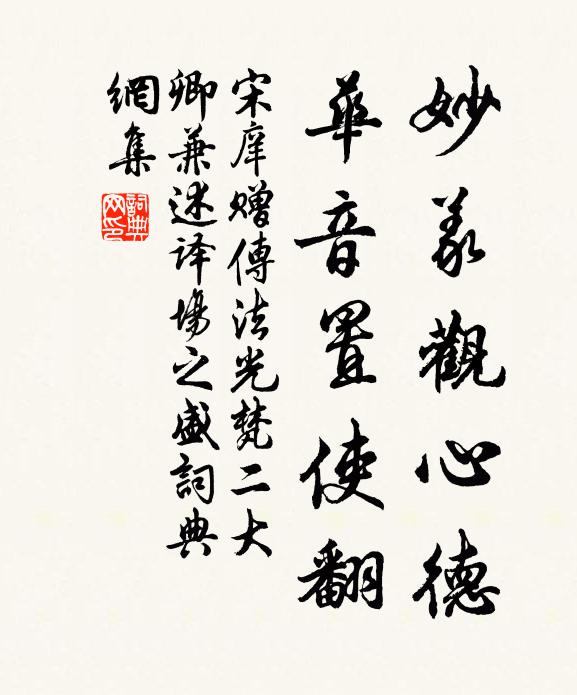 妙義觀心德
華音置使翻
宋庠赠傳法光梵二大
卿兼述译場之盛詞典
網集
詞典网印